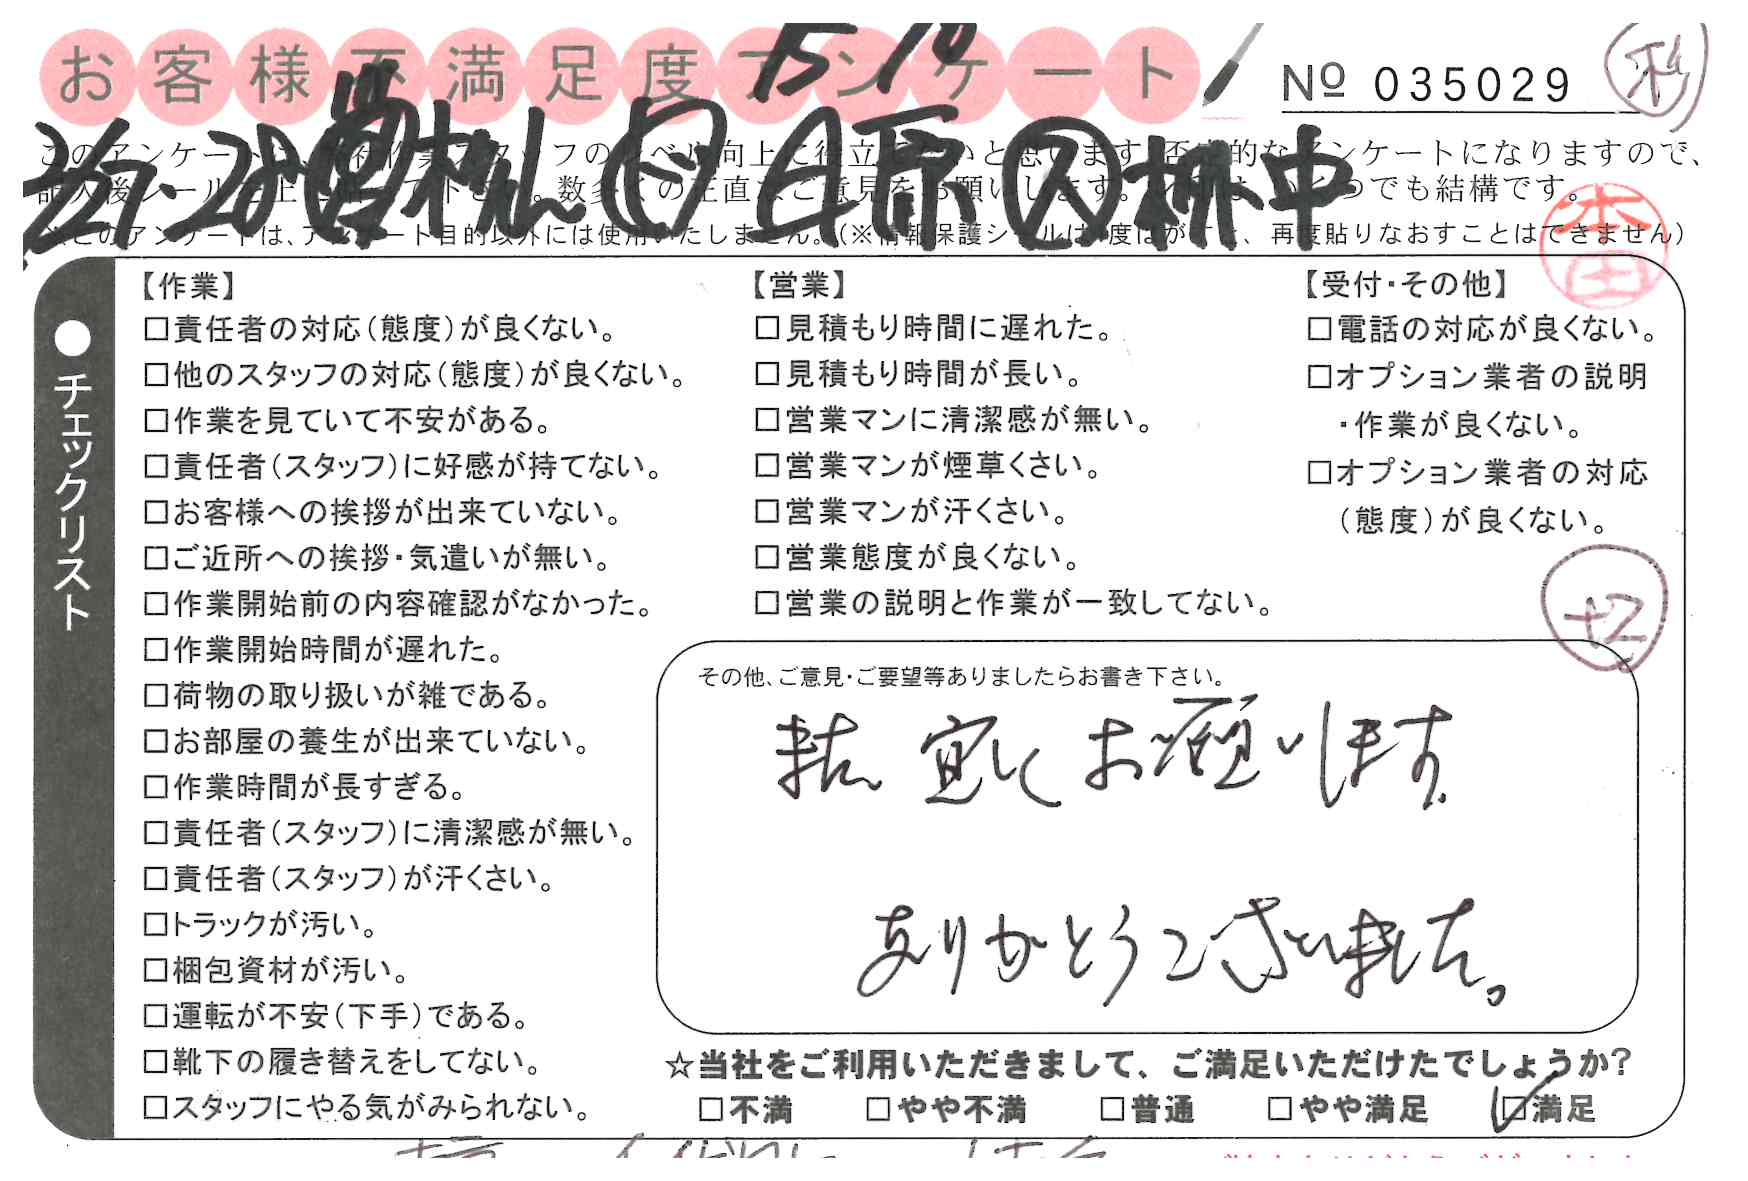 お客様不満足度アンケート
15/10
№ 035029
3/27・28 営 林 ト 白原 ス 林中
このアンケートは、
のレベル向上に役立
いと思います。否定的なアンケートになりますので、
数多くの正直なご意見をお願いします。
いくつでも結構です。
※このアンケートは、アンケート目的以外には使用いたしません。(※情報保護シールは1度はがすと、再度貼りなおすことはできません)
本田
●チェックリスト
【作業】
□責任者の対応(態度)が良くない。
□他のスタッフの対応(態度)が良くない。
□作業を見ていて不安がある。
□責任者(スタッフ)に好感が持てない。
□お客様への挨拶が出来ていない。
□ご近所への挨拶・気遣いが無い。
□作業開始前の内容確認がなかった。
□作業開始時間が遅れた。
□荷物の取り扱いが雑である。
□お部屋の養生が出来ていない。
□作業時間が長すぎる。
□責任者(スタッフ)に清潔感が無い。
□責任者(スタッフ)が汗くさい。
□トラックが汚い。
□梱包資材が汚い。
□運転が不安(下手)である。
□靴下の履き替えをしてない。
□スタッフにやる気がみられない。
【営業】
□見積もり時間に遅れた。
□見積もり時間が長い。
□営業マンに清潔感が無い。
□営業マンが煙草くさい。
□営業マンが汗くさい。
□営業態度が良くない。
□営業の説明と作業が一致してない。
【受付・その他】
□電話の対応が良くない。
□オプション業者の説明
・作業が良くない。
□オプション業者の対応
(態度)が良くない。
その他、ご意見・ご要望等ありましたらお書き下さい。
また宜しくお願いします
ありがとうございました。
☆当社をご利用いただきまして、ご満足いただけたでしょうか?
□不満 □やや不満 □普通 □やや満足 ☑満足